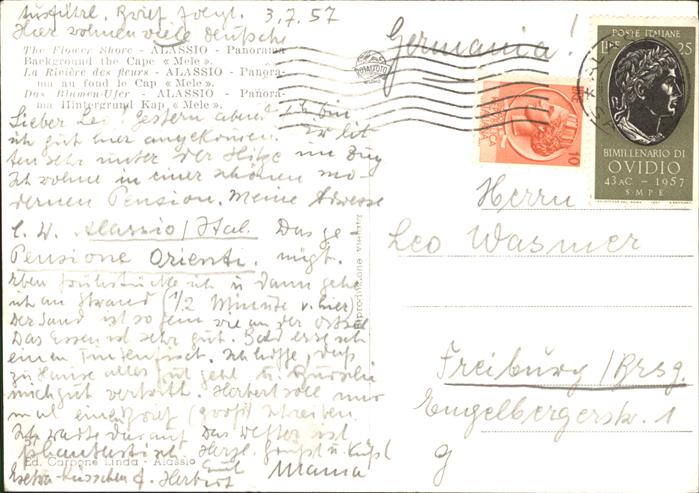 Ausführl. Brief folgt. 3.7.57
Hier wohnen viele Deutsche
The Flower Shore - ALASSIO - Panorama
Background the Cape « Mele ».
La Rivière des fleurs - ALASSIO - Panora-
ma au fond le Cap « Mele ».
Das Blumen-Ufer - ALASSIO - Panora-
ma Hintergrund Kap « Mele ».
Lieber Leo! Gestern abend bin
ich gut hier angekommen. Ich lit
ten sehr unter der Hitze im Zug
Ich wohne in einer schönen mo-
dernen Pension. Meine Adresse
Alassio/Ital. Das ge-
Pensione Orienti. nügt.
Eben frühstücke ich u dann gehe
ich an Strand (1/2 Minute v. hier)
Der Sand ist so fein wie an der Ostsee
Das Essen ist sehr gut. Bald esse ich
einen Tintenfisch. Ich hoffe daß
zu Hause alles gut geht u.
mich gut vertritt. Herbert soll mir
mal einen Brief (groß) schreiben
Ich warte darauf Das Wetter ist
phantastisch. Herzl. Grüße u. Küsse
Mama
Extra-Küsschen f. Herbert
Ed. Carbone Linda - Alassio
Riproduzione vietata
Germania!
POSTE ITALIANE
LIRE 25
BIMILLENARIO DI
OVIDIO
43 AC. - 1957
S·M·P·E
Herrn
Leo Wasmer
Freiburg/Brsg.
Engelbergerstr. 1